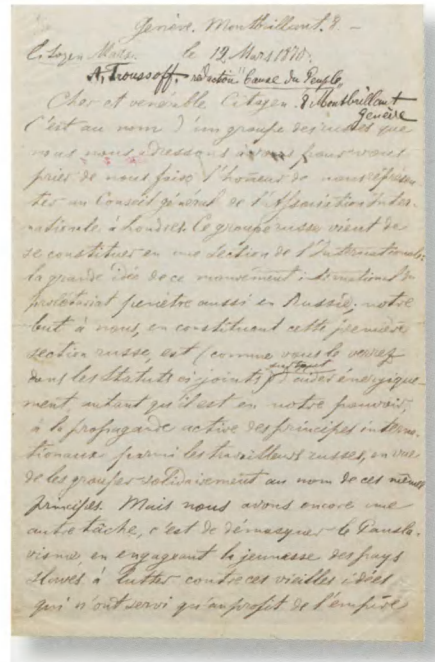 Genève. Montbrillant. 8. —
Citoyen Marx. le 12 Mars 1870.
A. Troussoff rédaction "Cause du Peuple"
8 Montbrillant
Genève
Cher et vénérable Citoyen.
C'est au nom d'un groupe des russes que
nous nous adressons à vous pour vous
prier de nous faire l'honneur de nous représen
ter au Conseil général de l'Association Inter-
nationale, à Londres. Ce groupe russe vient de
se constituer en une Section de l'Internationale:
la grande idée de ce mouvement international du
prolétariat pénètre aussi en Russie; notre
but à nous, en constituant cette première
section russe, est (comme vous le verrez
dans les Statuts ci-joints) surtout d'aider énergique-
ment, autant qu'il est en notre pouvoir,
à la propagande active des principes interna-
tionaux parmi les travailleurs russes, en vue
de les grouper solidairement au nom de ces mêmes
principes. Mais nous avons encore une
autre tâche, c'est de démasquer le Pansla-
visme, en engageant la jeunesse des pays
slaves à lutter contre ces vieilles idées
qui n'ont servi qu'au profit de l'empire